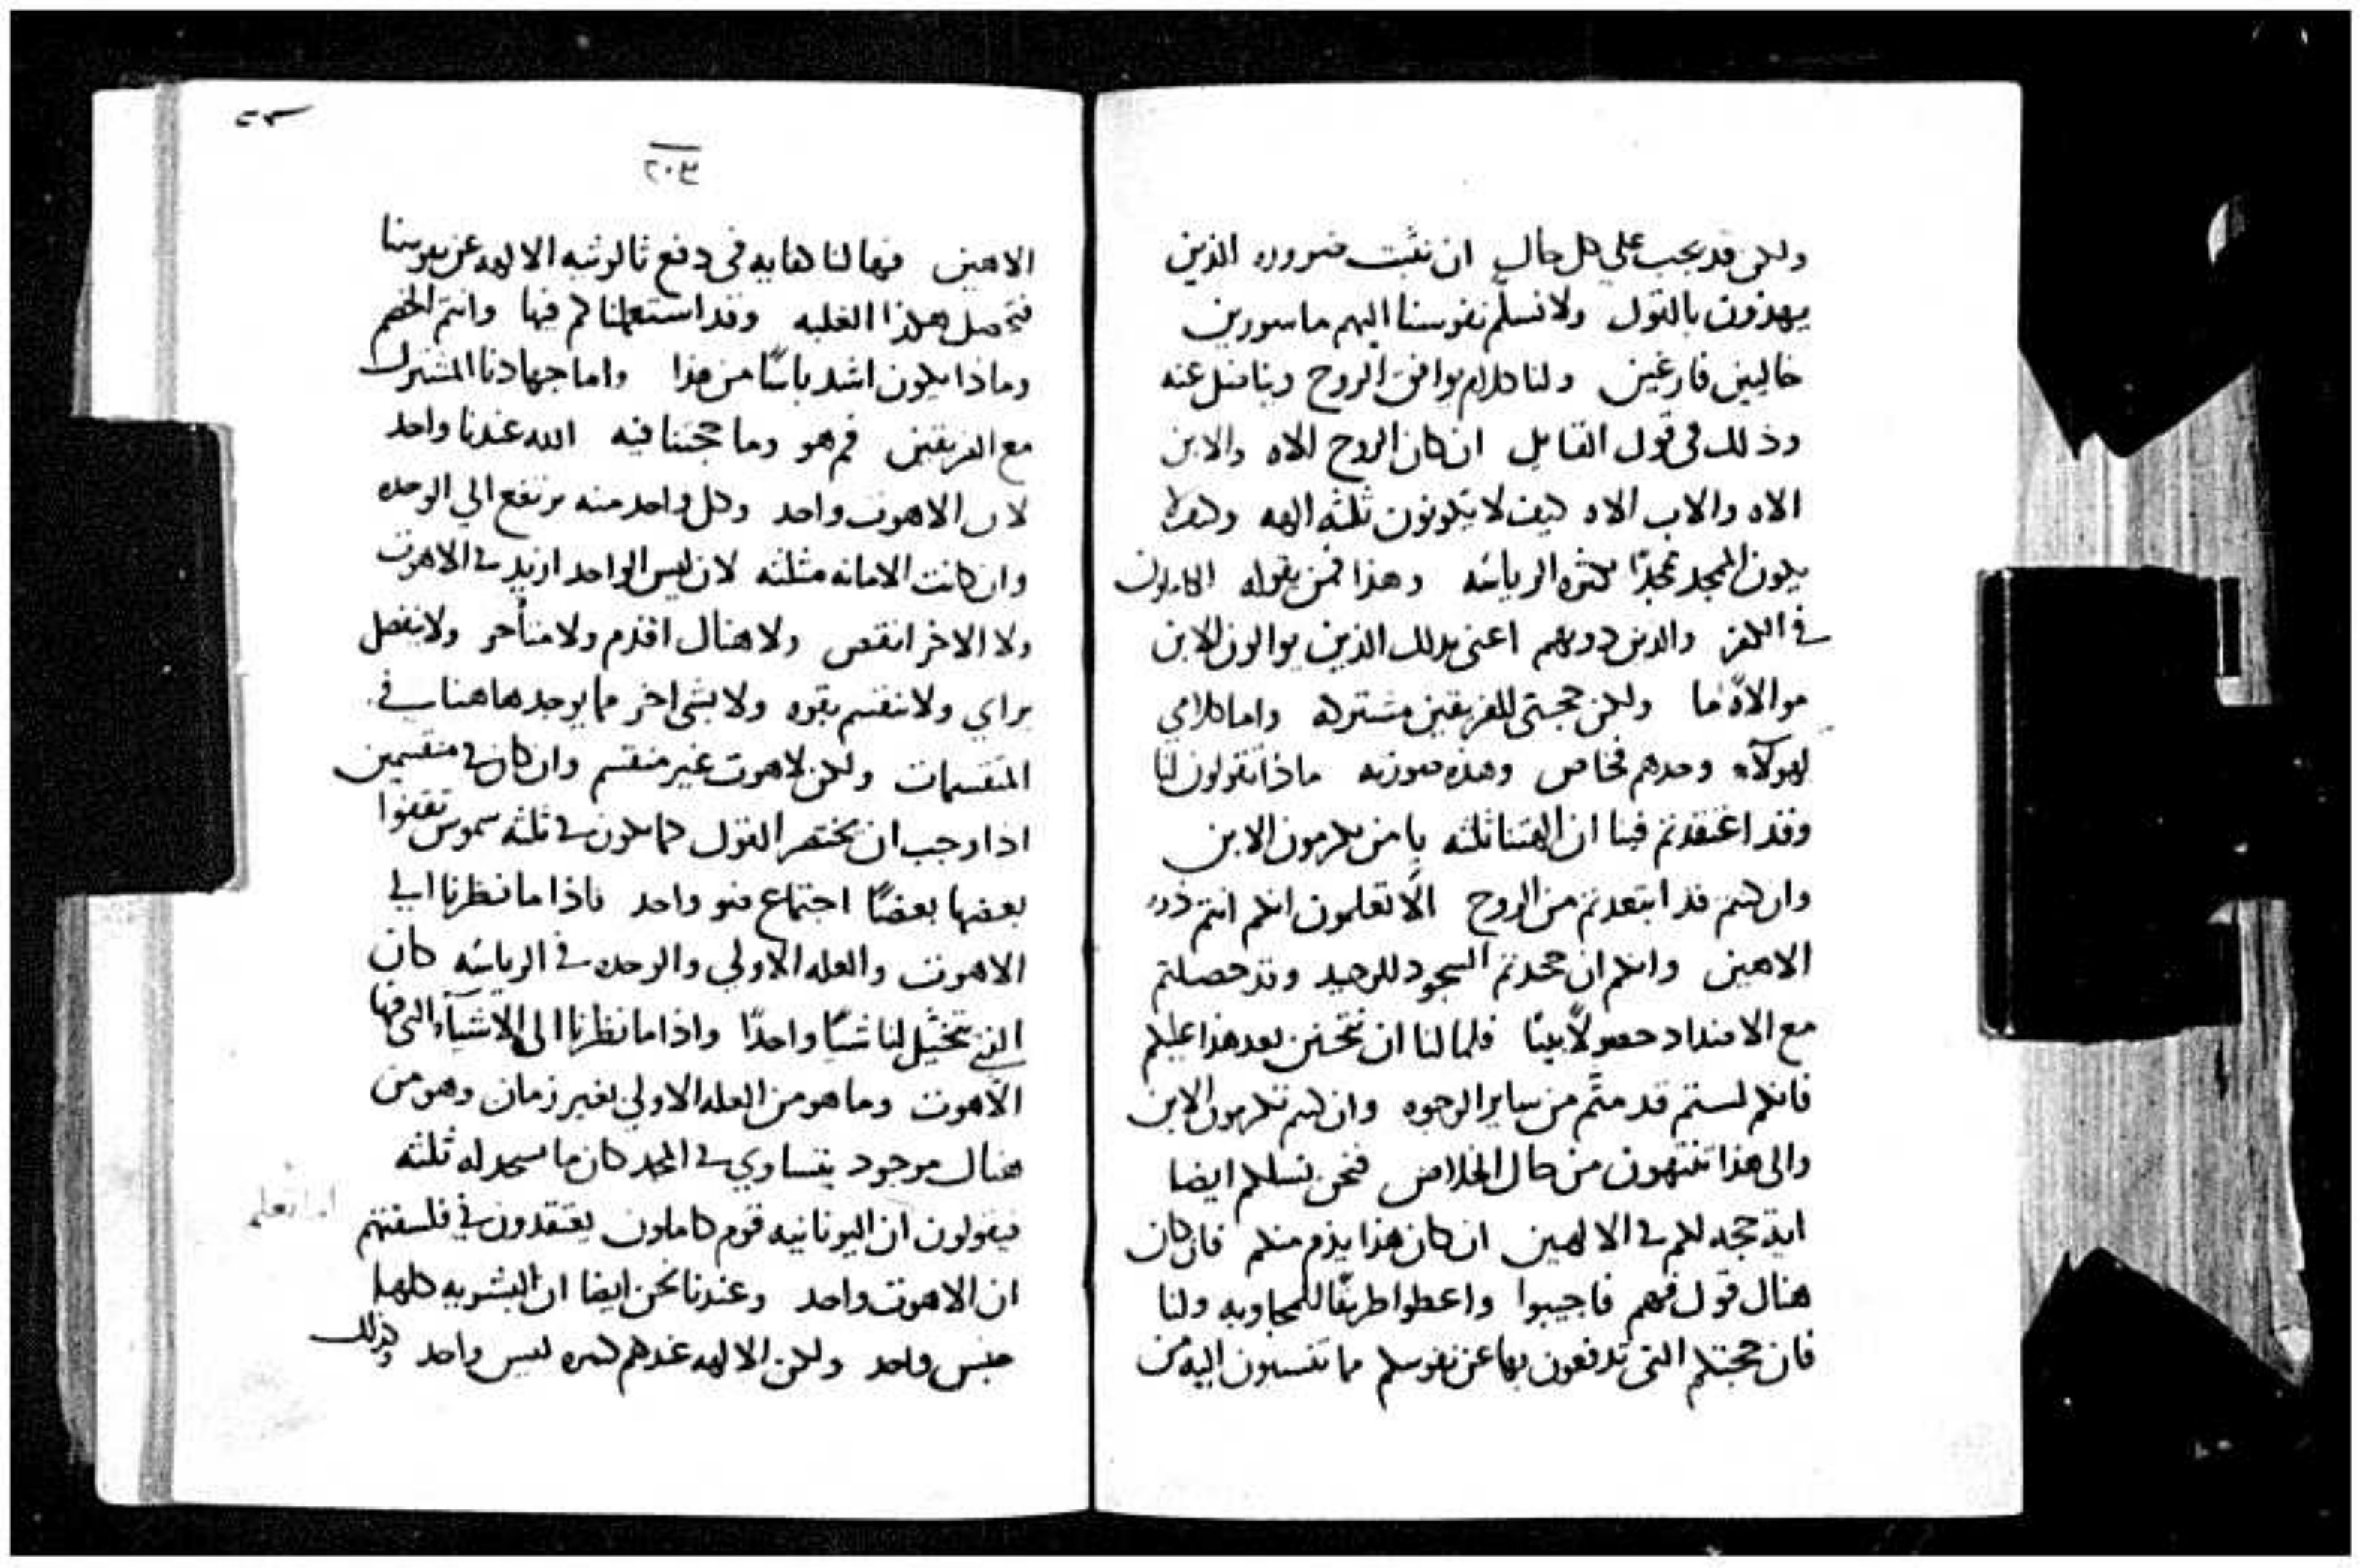 ولكن قد يجب على كل حال ان نثبت ضروره الذين
يهذون بالقول ولا نسلم نفوسنا اليهم ماسورين
خاليين فارغين ولنا كلام يوافق الروح ويناضل عنه
وذلك في قول القايل ان كان الروح الاه والابن
الاه والاب الاه كيف لا يكونون ثلثه الهه وكيف لا
يكون المجد مجدًا كثره الرياسه وهذا فمن يقوله الكاملون
في الكفر والذين دونهم اعني بذلك الذين يوالون الابن
موالاةً ما ولكن حجتي للفريقين مشتركه واما كلامي
لهولآء وحدهم فخاص وهذه صورته ماذا تقولون لنا
وقد اعتقدتم فينا ان الهتنا ثلثه يا من يكرمون الابن
وان كنتم قد ابتعدتم من الروح الا تعلمون انكم انتم ذوو
الاهين وانكم ان جحدتم السجود للوحيد وقد حصلتم
مع الاضداد حصولاً بينًا فلما لنا ان نتحنن بعد هذا عليكم
فانكم لستم قد متّم من ساير الوجوه وان كنتم تكرمون الابن
والى هذا تنتهون من حال الخلاص فنحن نسلكم ايضا
ايه حجه لكم في الالهين ان كان هذا يذم منكم فان كان
هناك قول فهم فاجيبوا واعطوا طريقًا للمجاوبه ولنا
فان حجتكم التي تدفعون بها عن نفوسكم ما تنسبون اليه من
٢٠٣
الاهين فيها لنا كفايه في دفع ثالوثيه الالهه عن نفوسنا
فتحصل هكذا الغلبه وقد استعملناكم فيها وانتم الخصم
وماذا يكون اشد باسًا من هذا واما جهادنا المشترك
مع الفريقين فم هو وما حجتنا فيه الله عندنا واحد
لان الاهوت واحد وكل واحد منه يرتفع الي الوحده
وان كانت الامانه مثلثه لان ليس الواحد ازيد في الاهوت
ولا الاخر انقص ولا هناك اقدم ولا متأخر ولا ينفصل
براي ولا تنقسم بقوه ولا بشي اخر مما يوجد هاهنا في
المنقسمات ولكن لاهوت غير منقسم وان كان في منقسمين
اذا وجب ان يختصر القول كما يكون في ثلثه شموس
بعضها بعضًا اجتماع ضو واحد فاذا ما نظرنا الي
الاهوت والعله الاولي والوحده في الرياسه كان
الذي تخيّل لنا شيًا واحدًا واذا ما نظرنا الى الاشيآء التي فيها
الاهوت وما هو من العله الاولي بغير زمان وهو من
هناك موجود يتساوي في المجد كان ما نسجد له ثلثه
فيقولون ان اليونانيه قوم كاملون يعتقدون في فلسفتهم
ان الاهوت واحد وعندنا نحن ايضا ان البشريه كلها
جنس واحد ولكن الالهه عندهم كثيره ليس واحد وكذلك